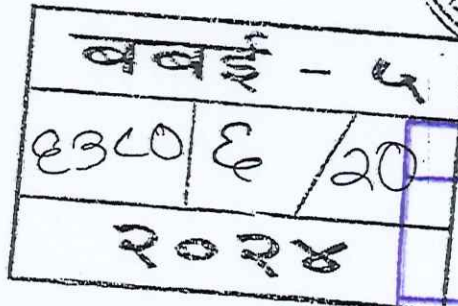 बबई - ५
६३८० ६ / २०
२०२४